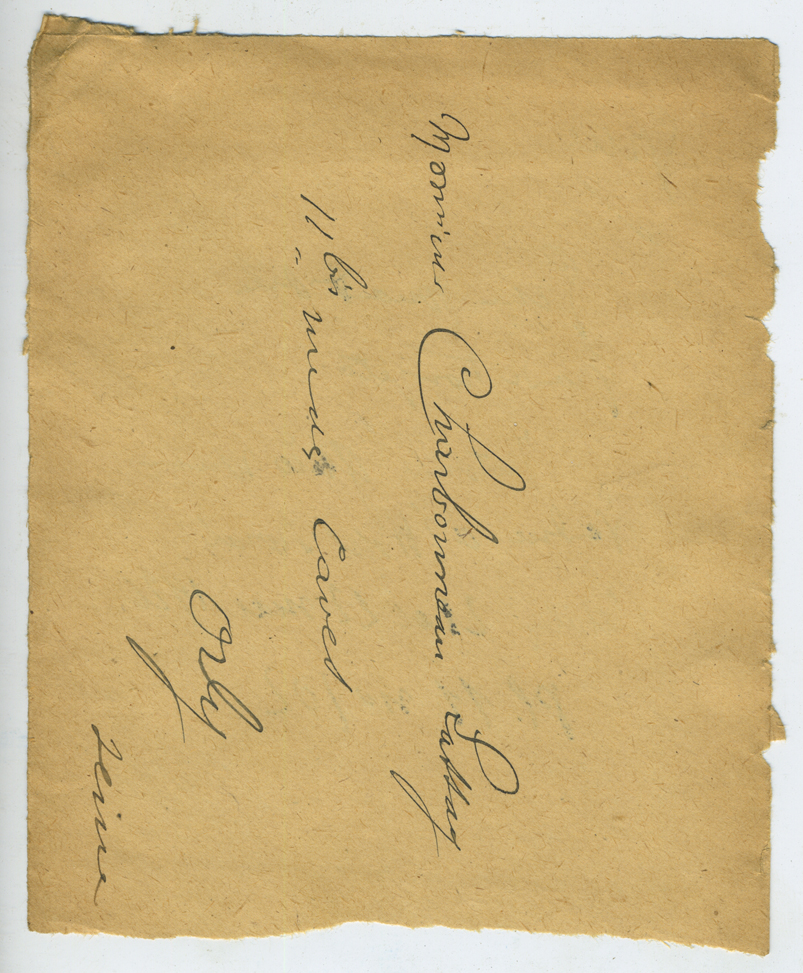 Monsieur Charbonneau Lassay
11 bis rue des Caves
Orly
Seine